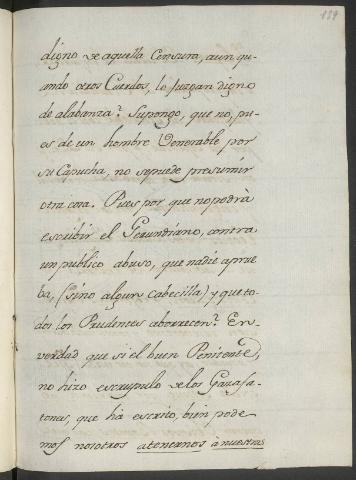 189
digno de aquella Censura, aun qu-
ando otros Cuerdos, lo juzgan digno
de alabanza? Supongo, que no, pu-
es de un hombre Venerable por
su Capucha, no sepuede presumir
otra cosa. Pues por que no podrà
escribir el Gerundiano, contra
un publico abuso, que nadie aprue
ba, (sino algun Cabecilla) y que to-
dos los Prudentes aborrecen? En-
verdad que si el buen Penitente,
no hizo escrupulo de los Gazafa-
tones, que ha escrito, bien pode
mos nosotros atenernos à nuestras